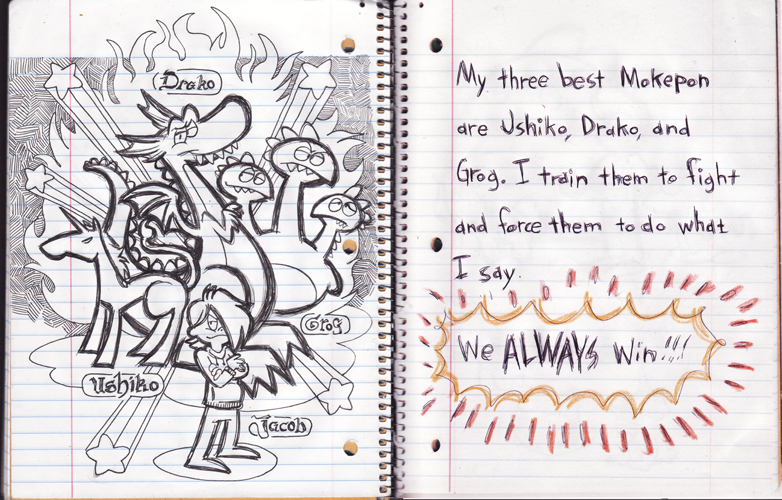 Drako
Grog
Ushiko
Jacob
My three best Mokepon
are Ushiko, Drako, and
Grog. I train them to fight
and force them to do what
I say.
We ALWAYS Win!!!